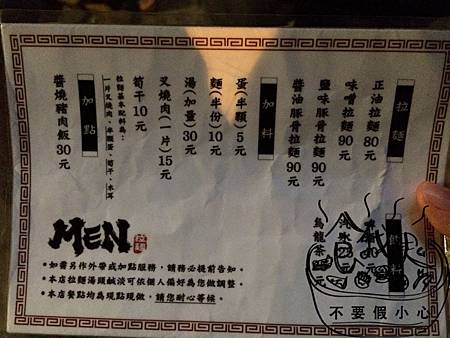 拉麵
正油拉麵 80元
味噌拉麵 90元
鹽味豚骨拉麵 90元
醬油豚骨拉麵 90元
加料
蛋(半顆) 5元
麵(半份) 10元
湯(加量) 30元
叉燒肉(一片) 15元
筍干 10元
拉麵基本配料為：
一片叉燒肉、半顆蛋、筍干、木耳
加點
醬燒豬肉飯 30元
飲料
烏龍茶
MEN
•如需另作外帶或加點服務，請務必提前告知。
•本店拉麵湯頭鹹淡可依個人偏好為您做調整。
•本店餐點均為現點現做，請您耐心等候。
不要假小心